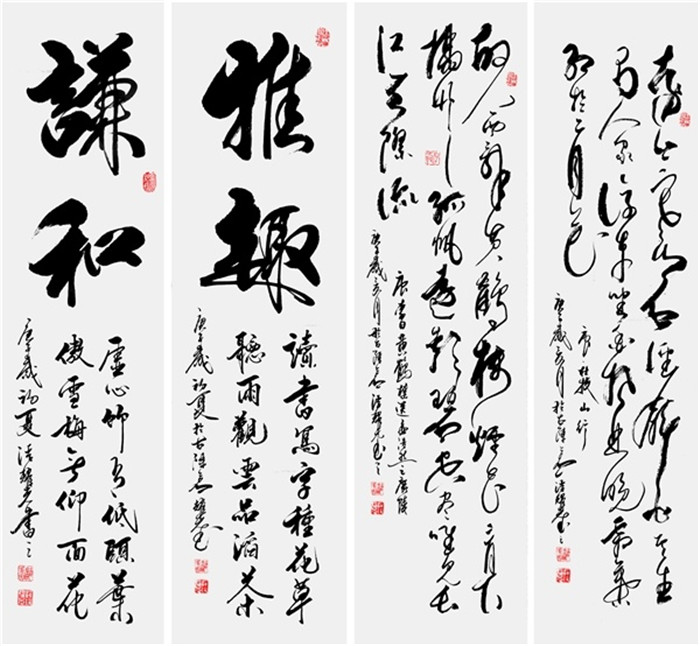 遠上寒山石徑斜白雲生
處有人家停車坐愛楓林晚霜葉
紅於二月花
唐杜牧山行
庚子歲六月於古
故人西辭黃鶴樓煙花三月下
揚州孤帆遠影碧空盡唯見長
江天際流
唐李白黃鶴樓送孟浩然之廣陵
庚子歲六月於古
雅趣
讀書寫字種花草
聽雨觀雲品滔茶
庚子歲初夏於古
謙和
虛心竹有低頭葉
傲雪梅無仰面花
庚子歲初夏書之